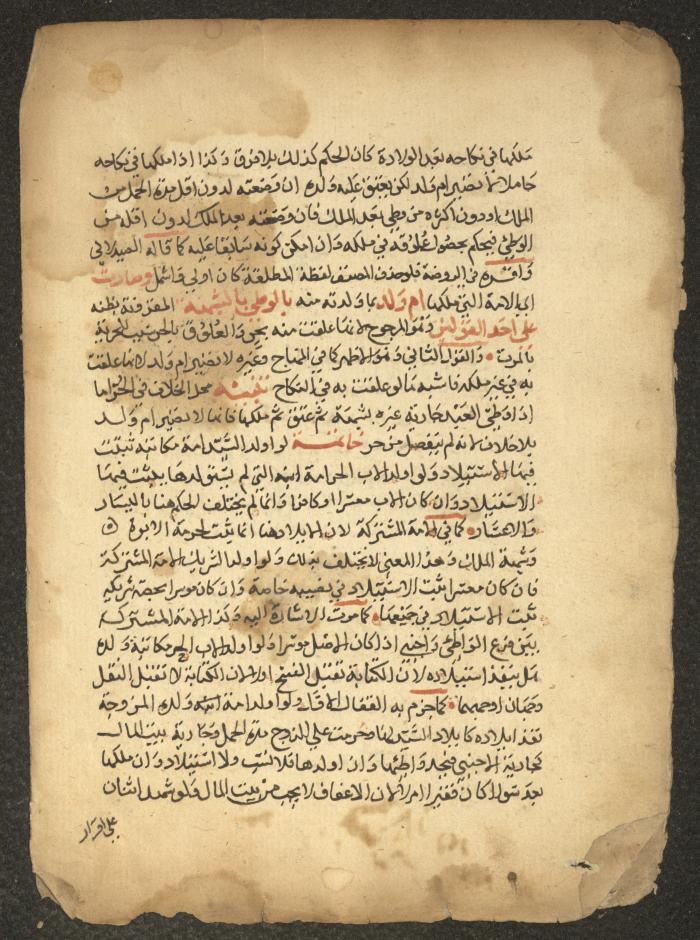 ملكها في نكاحه بعد الولادة كان الحكم كذلك بلا فرق وكذا اذا ملكها في نكاحه
حاملا لا تصير ام ولد لكن يعتق عليه ولده ان وضعته لدون اقل مدة الحمل من
الملك او دون اكثره من وطئ بعد الملك فان وضعته بعد الملك لدون اقله من
الوطئ فيحكم بحصول علوقه في ملكه وان امكن كونه سابقا عليه كما قاله الصيدلاني
واقره في الروضة فلو حذف المصنف لفظة المطلقة كان اولى واشمل وصارت
اي الامة التي ملكها ام ولد بما ولدته منه بالوطئ بالشبهة المقرونة بظنه
على احد القولين وهو المرجوح لانها علقت منه بحر والعلوق بالحر سبب للحرية
بالموت والقول الثاني وهو الاظهر كما في المنهاج وغيره لا تصير ام ولد لانها علقت
به في غير ملكه فاشبه ما لو علقت به في النكاح تنبيه محل الخلاف في الحر اما
اذا وطئ العبد جارية غيره بشبهة ثم عتق ثم ملكها فانها لا تصير ام ولد
بلا خلاف لانه لم ينفصل من حر خاتمة لو اولد السيد امة مكاتبه ثبت
فيها الاستيلاد ولو اولد الاب الحر امة ابنه التي لم يستولدها ثبت فيها
الاستيلاد وان كان الاب معسرا او كافرا وانما لم يختلف الحكم هنا باليسار
والاعسار كما في الامة المشتركة لان الايلاد هنا انما ثبت لحرمة الابوة
وشبهة الملك وهذا المعنى لا يختلف بذلك ولو اولد الشريك الامة المشتركة
فان كان معسرا ثبت الاستيلاد في نصيبه خاصة وان كان موسرا بحصة شريكه
ثبت الاستيلاد في جميعها كما مرت الاشارة اليه وكذا الامة المشتركة
بين فرع الواطئ واجنبي اذا كان الاصل موسرا ولو اولد الاب الحر مكاتبة ولده
هل ينفذ استيلاده لان الكتابة تقبل الفسخ او لا لان الكتابة لا تقبل النقل
وجهان اوجههما كما جزم به القفال الاول ولو اولد امة ابنه ولده المزوجة
نفذ ايلاده كايلاد السيد لها وحرمت على الزوج مدة الحمل وجارية بيت المال
كجارية الاجنبي فيحد واطئها وان اولدها فلا نسب ولا استيلاد وان ملكها
بعد سواء كان فقيرا ام لا لان الاعفاف لا يجب من بيت المال ولو شهد اثنان
على اقرار